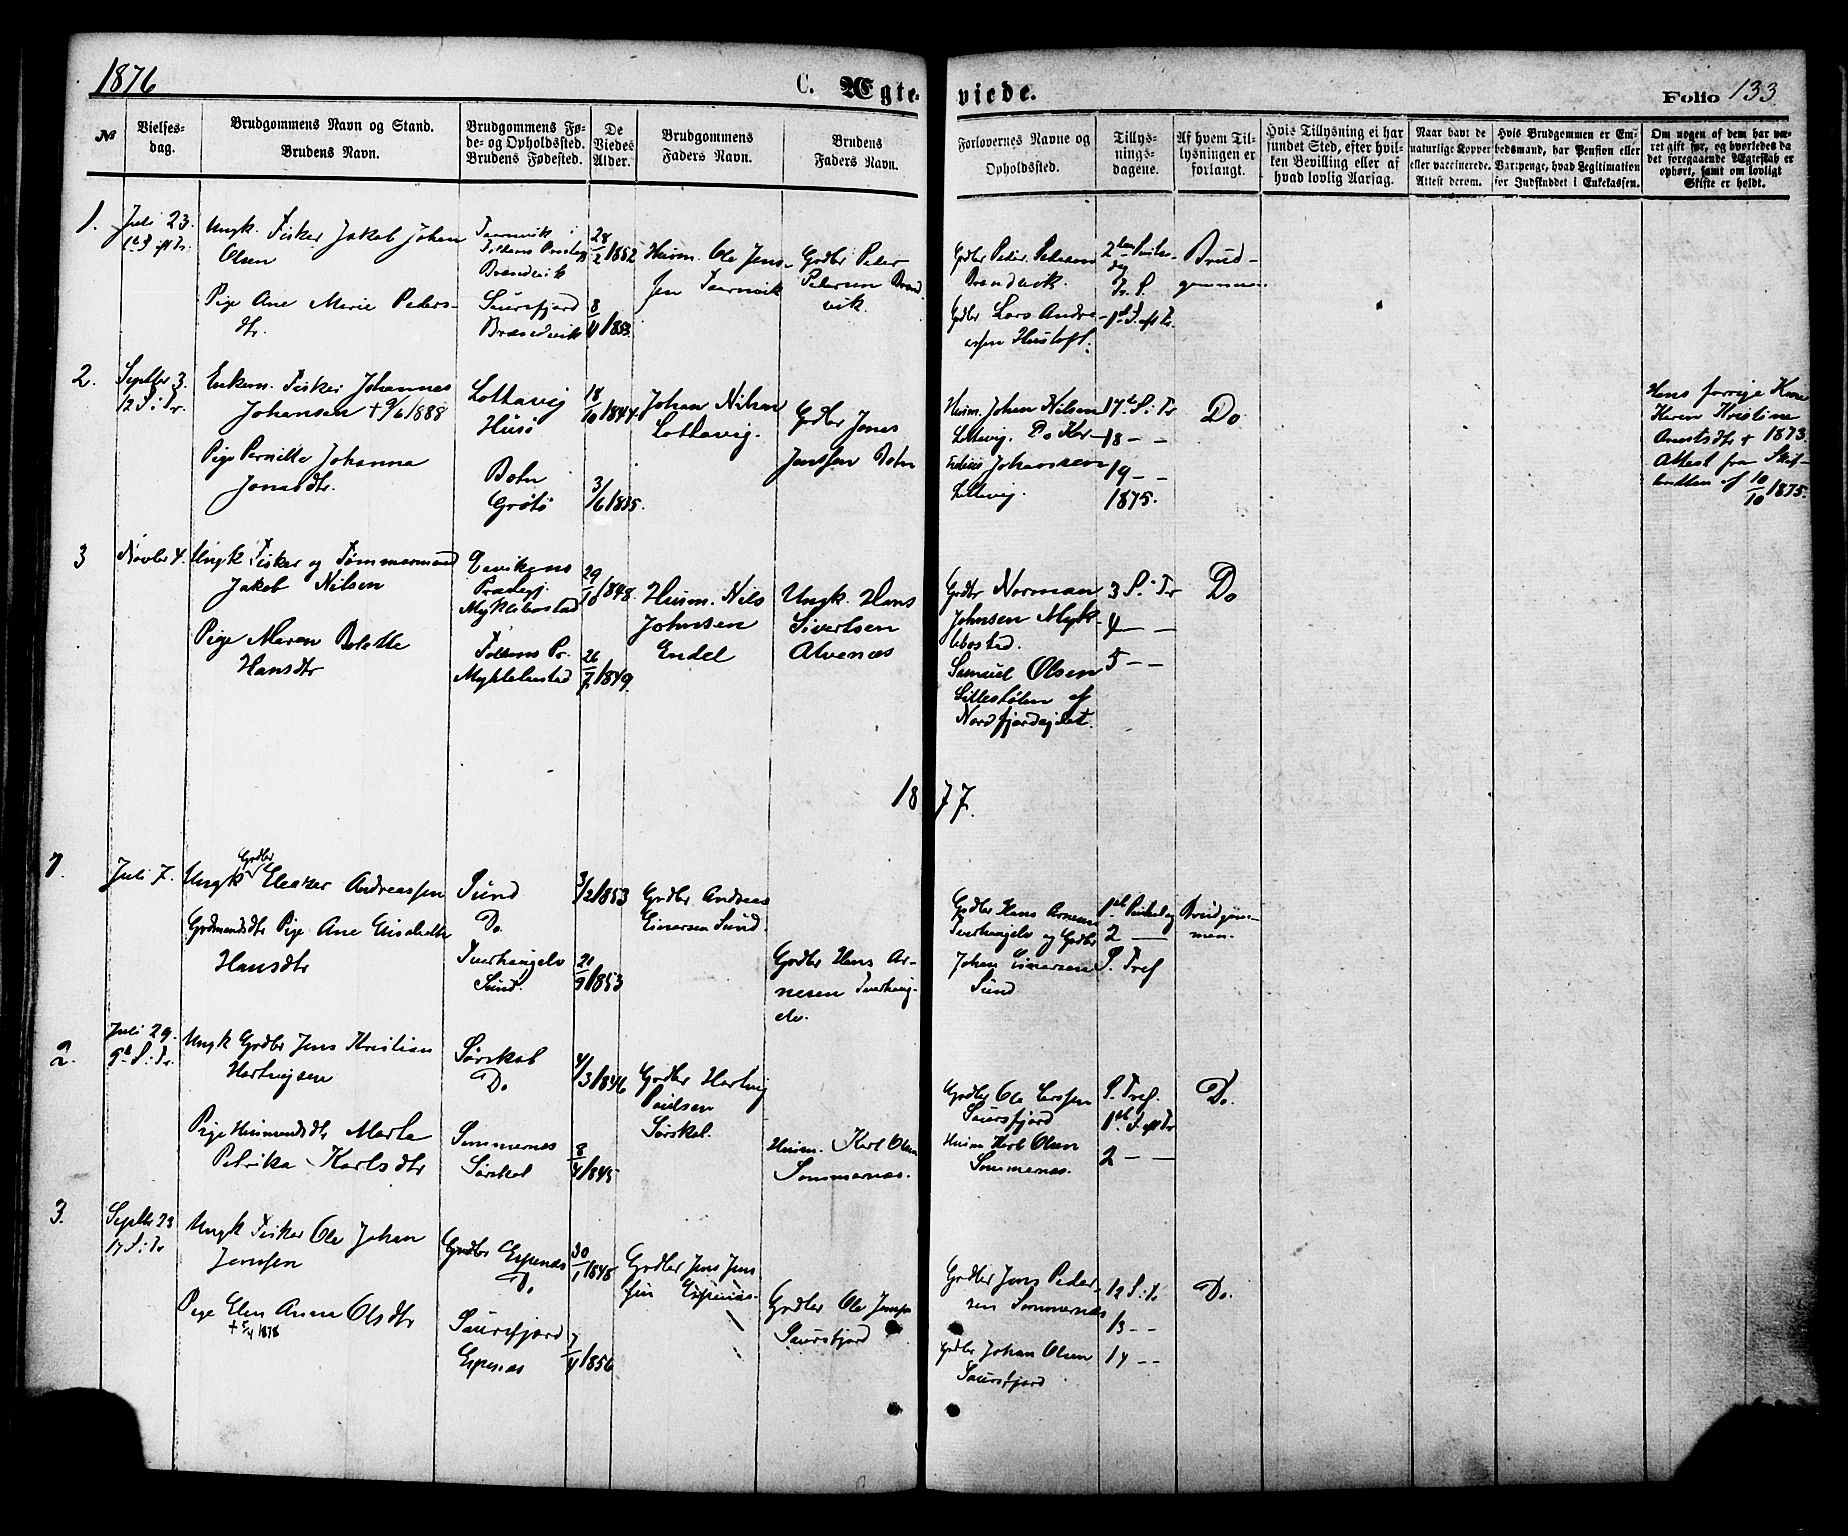 1876
C. Ægteviede.
Folio 133
№
Vielses-
dag.
Brudgommens Navn og Stand.
Brudens Navn.
Brudgommens Fø-
de- og Opholdssted.
Brudens Fødested.
De
Viedes
Alder.
Brudgommens
Faders Navn.
Brudens
Faders Navn.
Forlovernes Navne og
Opholdssted.
Tillys-
nings-
dagene.
Af hvem Til-
lysningen er
forlangt.
Hvis Tillysning ei har
fundet Sted, efter hvil-
ken Bevilling eller af
hvad lovlig Aarsag.
Naar havt de
naturlige Kopper
eller vaccinerede.
Attest derom.
Hvis Brudgommen er Em-
bedsmand, har Pension eller
Vartpenge, hvad Legitimation
for Indskuddet i Enkekassen.
Om nogen af dem har væ-
ret gift før, og hvorledes da
det foregaaende Ægteskab er
ophørt, samt om lovligt
Skifte er holdt.
1.
Juli 23.
Ungk. Fisker Jakob Johan
Olsen
Pige Ane Marie Peders-
dtr.
Brændvik
Saursfjord
Brændvik
28/2 1852
8/11 1853
Huusm. Ole Jens-
sen Taarnvik
Grdbr Peder
Petersen Brænd
vik.
Grdbr Peder Petersen
Brændvik.
Grdbr Lars Andre-
assen
2den Pintse-
dag
Tr. S.
1ste S. eft Tr.
Brud-
gommen
2.
Septbr 3.
12 S. i Tr.
Enkem. Fisker Johannes
Johansen + 9/6 1888
Pige Pernille Johanna
Jonasdtr.
Lottavig
Husø
Botn
Grøtø
18/10 1844.
3/6 1835
Johan Nilsen
Lottavig.
Grdbr Jonas
Jenssen Botn
Huusm. Johan Nilsen
Lottavig. Do
Johanssen
Lottavig.
17de S. i Tr
18 — —
19 — —
1875.
Do
Hans forrige Kone
Karen Kristine
+ 1873.
Attest fra Skif-
af 10/10 1875.
3
Novbr 4.
Ungk Fisker og Tømmermand
Jakob Nilsen
Pige Maren Bolette
Hansdtr
Eevikens
Præstegj.
Myklebostad
Foldens Pr.
Myklebostad
29/10 1848.
26/7 1849.
Huusm. Nils
Johnsen
Endel
Ungk. Hans
Sivertsen
Alvenæs
Grdbr Norman
Johnsen Myk-
lebostad.
Samuel Olsen
Lillestølen af
Nordfjordejdet.
3 S. i Tr
4 — —
5 — —
Do
1877.
1.
Juli 7.
Ungk Grdbr Eleazer Andreassen
Grdmandsdtr Pige Ane Elisabeth
Hansdtr
Sund
Do.
Tverhangelv
Sund.
3/2 1853
21/9 1853
Grdbr Andreas
Einersen Sund.
Grdbr Hans Ar-
nesen Tverhang-
elv.
Grdbr Hans Arnesen
Tverhangelv og Grdbr
Johan Einersen
Sund
1ste Pintsedag
2 —
S. Tref
Brudgom-
men.
2.
Juli 29.
9de S. i Tr.
Ungk Grdbr Jens Kristian
Hartvigsen
Pige Huusmandsdtr Marta
Petrika Karlsdtr
Sørskot
Do
Sommernes
Sørskot
4/3 1846
8/4 1845
Grdbr Hartvig
Paulsen
Sørskot.
Huusm. Karl Olsen
Sommernæs.
Grdbr Ole Larssen
Saursfjord
Huusm Karl Olsen
Sommernæs.
S. Tref.
1ste S. eft Tr
2 — —
Do.
3.
Septbr 23
17 S. i Tr
Ungk Fisker Ole Johan
Jenssen
Pige Elen Anna Olsdtr
Grdbr Espenæs
Do
Saursfjord
Espenæs
30/1 1848
7/4 1856
Grdbr Jens Jens
sen Espenæs.
Grdbr Ole Jenssen
Saursfjord
Grdbr Jens Peder-
sen Sommernæs
Grdbr Johan Olsen
Saursfjord
12 S. i Tr
13 — —
14 — —
Do.